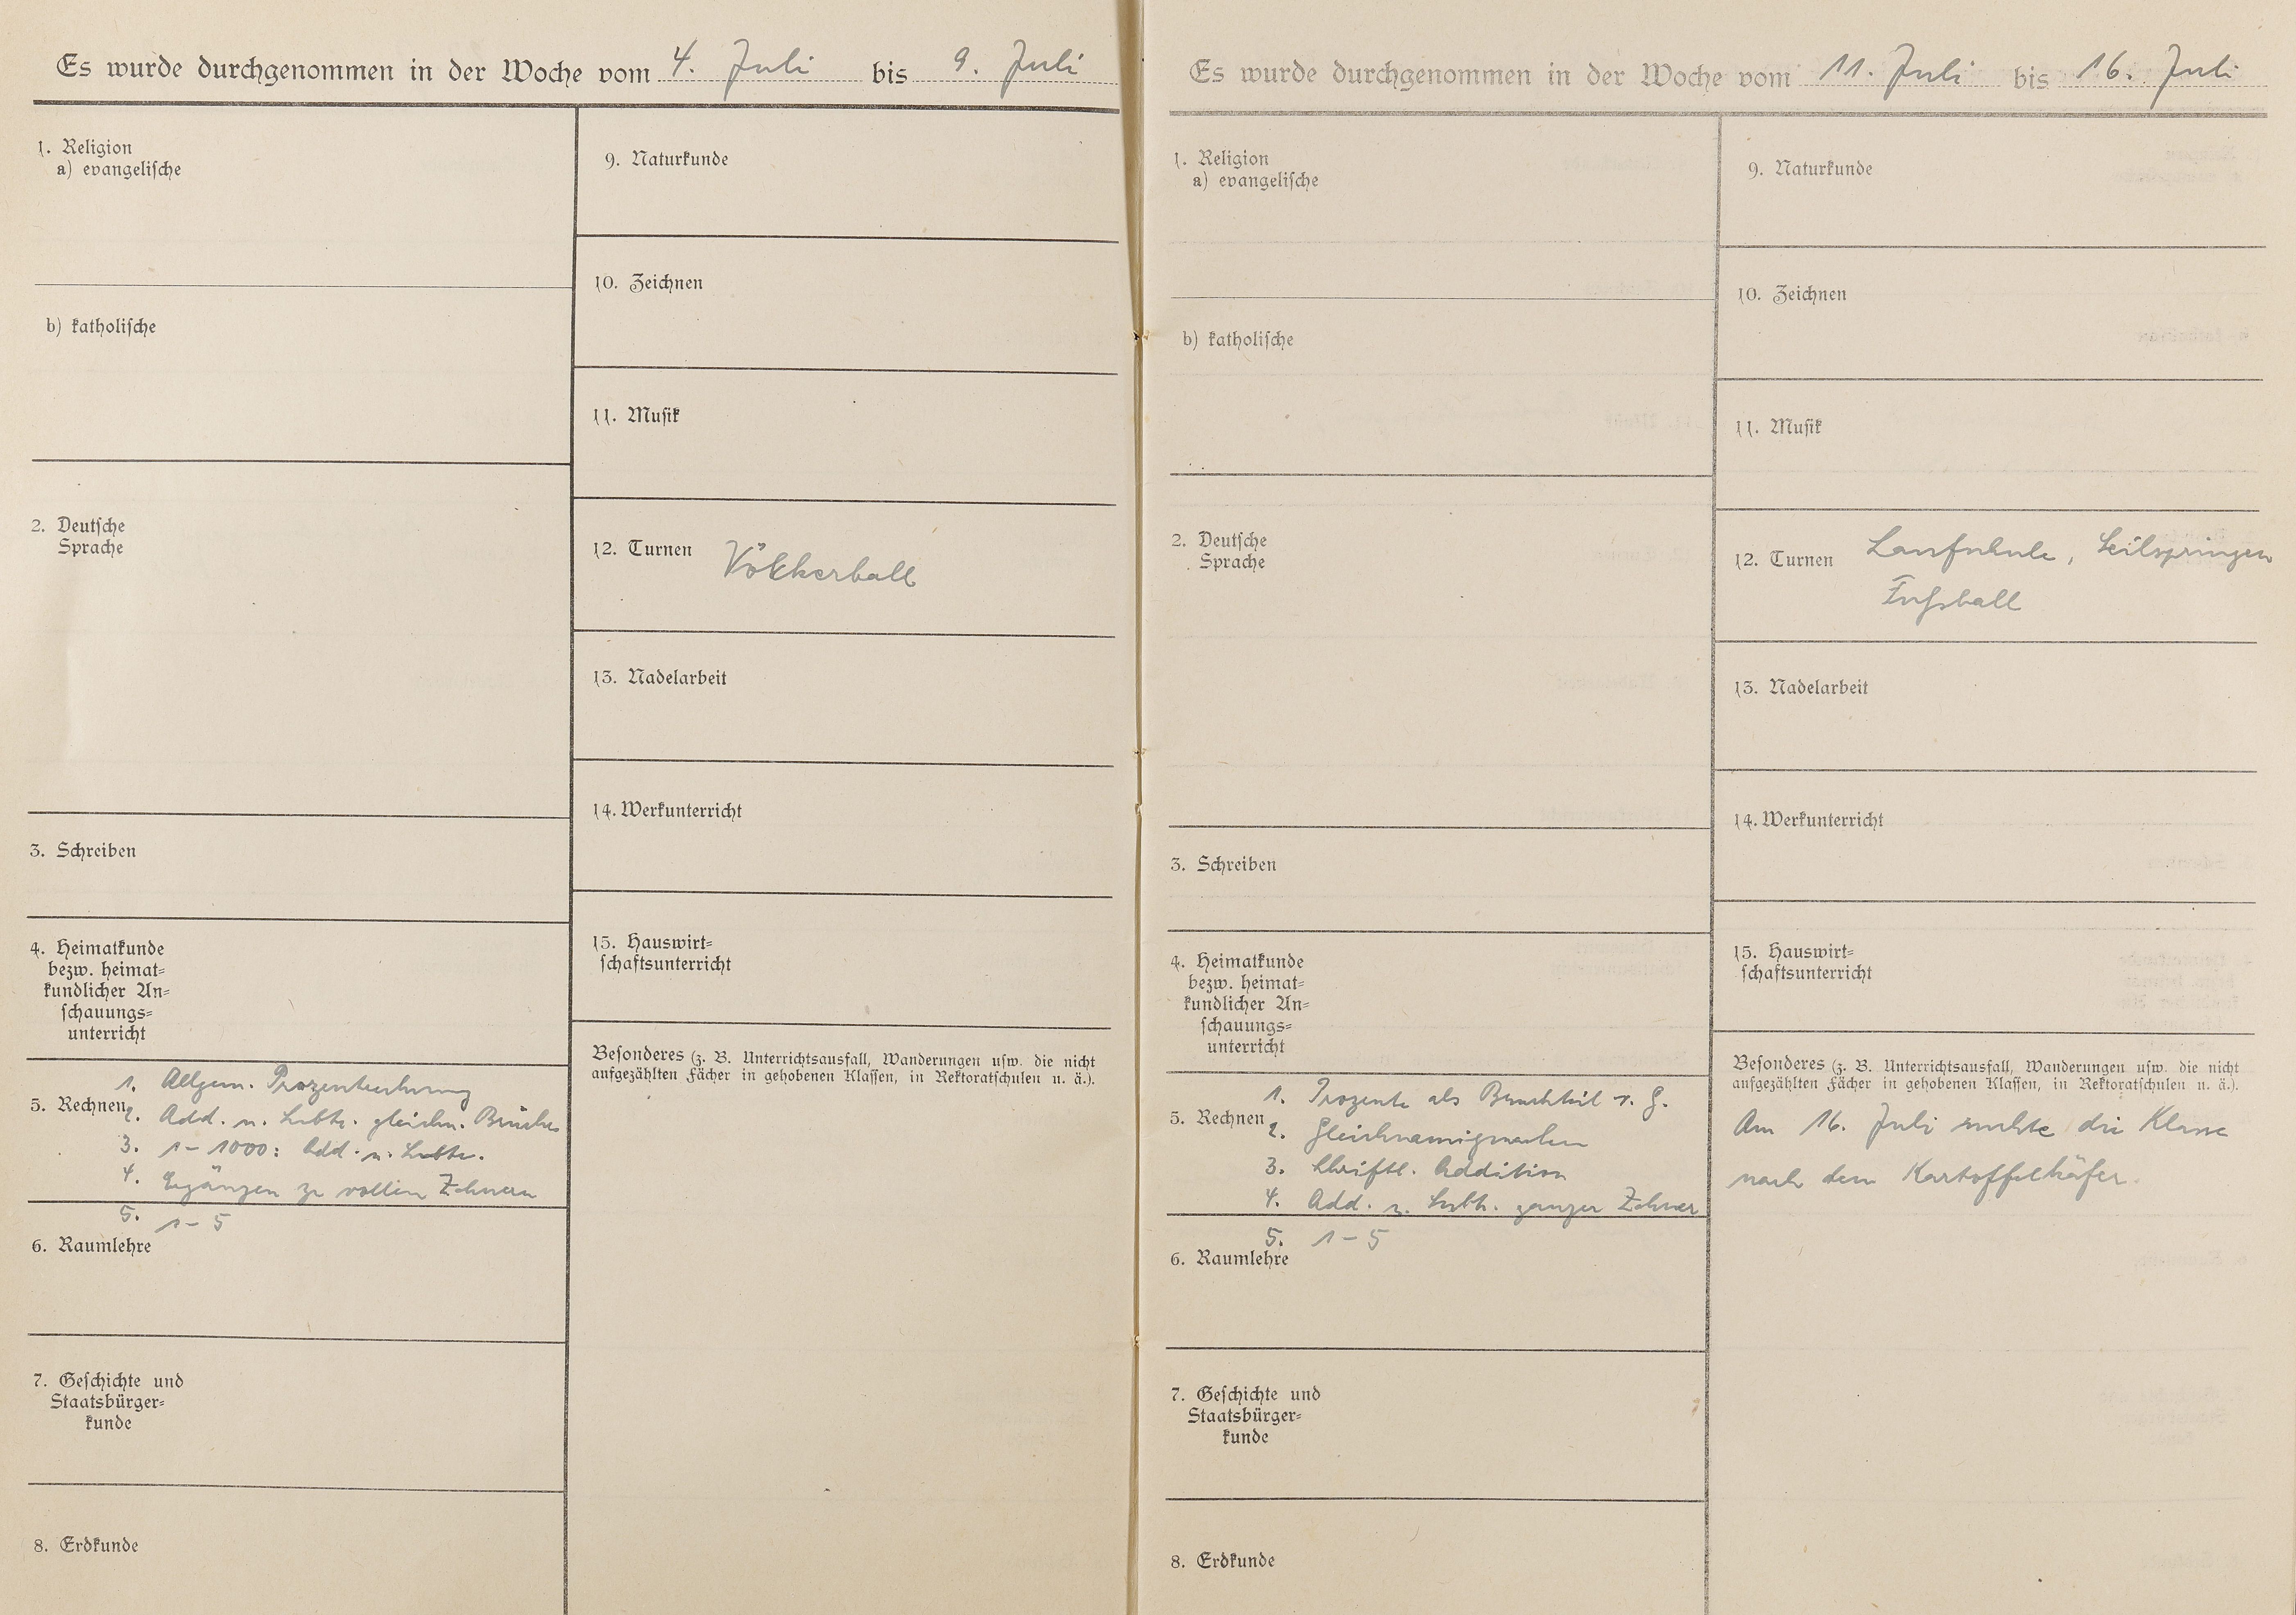 Es wurde durchgenommen in der Woche vom 4. Juli bis 9. Juli
1. Religion
a) evangelische
b) katholische
2. Deutsche
Sprache
3. Schreiben
4. Heimatkunde
bezw. heimat=
kundlicher An=
schauungs=
unterricht
5. Rechnen
1. Allgem. Prozentrechnung
2. Add. u. Subtr. gleichn. Brüche
3. 1-1000: Add. u. Subtr.
4. Ergänzen zu vollen Zehnern
5. 1-5
6. Raumlehre
7. Geschichte und
Staatsbürger=
kunde
8. Erdkunde
9. Naturkunde
10. Zeichnen
11. Musik
12. Turnen Völkerball
13. Nadelarbeit
14. Werkunterricht
15. Hauswirt=
schaftsunterricht
Besonderes (z. B. Unterrichtsausfall, Wanderungen usw. die nicht
aufgezählten Fächer in gehobenen Klassen, in Rektoratschulen u. ä.).
Es wurde durchgenommen in der Woche vom 11. Juli bis 16. Juli
1. Religion
a) evangelische
b) katholische
2. Deutsche
Sprache
3. Schreiben
4. Heimatkunde
bezw. heimat=
kundlicher An=
schauungs=
unterricht
5. Rechnen
1. Prozente als Bruchteil v. G.
2. Gleichnamigmachen
3. Schriftl. Addition
4. Add. u. Subtr. ganzer Zehner
5. 1-5
6. Raumlehre
7. Geschichte und
Staatsbürger=
kunde
8. Erdkunde
9. Naturkunde
10. Zeichnen
11. Musik
12. Turnen Laufschule, Seilspringen
Fußball
13. Nadelarbeit
14. Werkunterricht
15. Hauswirt=
schaftsunterricht
Besonderes (z. B. Unterrichtsausfall, Wanderungen usw. die nicht
aufgezählten Fächer in gehobenen Klassen, in Rektoratschulen u. ä.).
Am 16. Juli suchte die Klasse
nach dem Kartoffelkäfer.